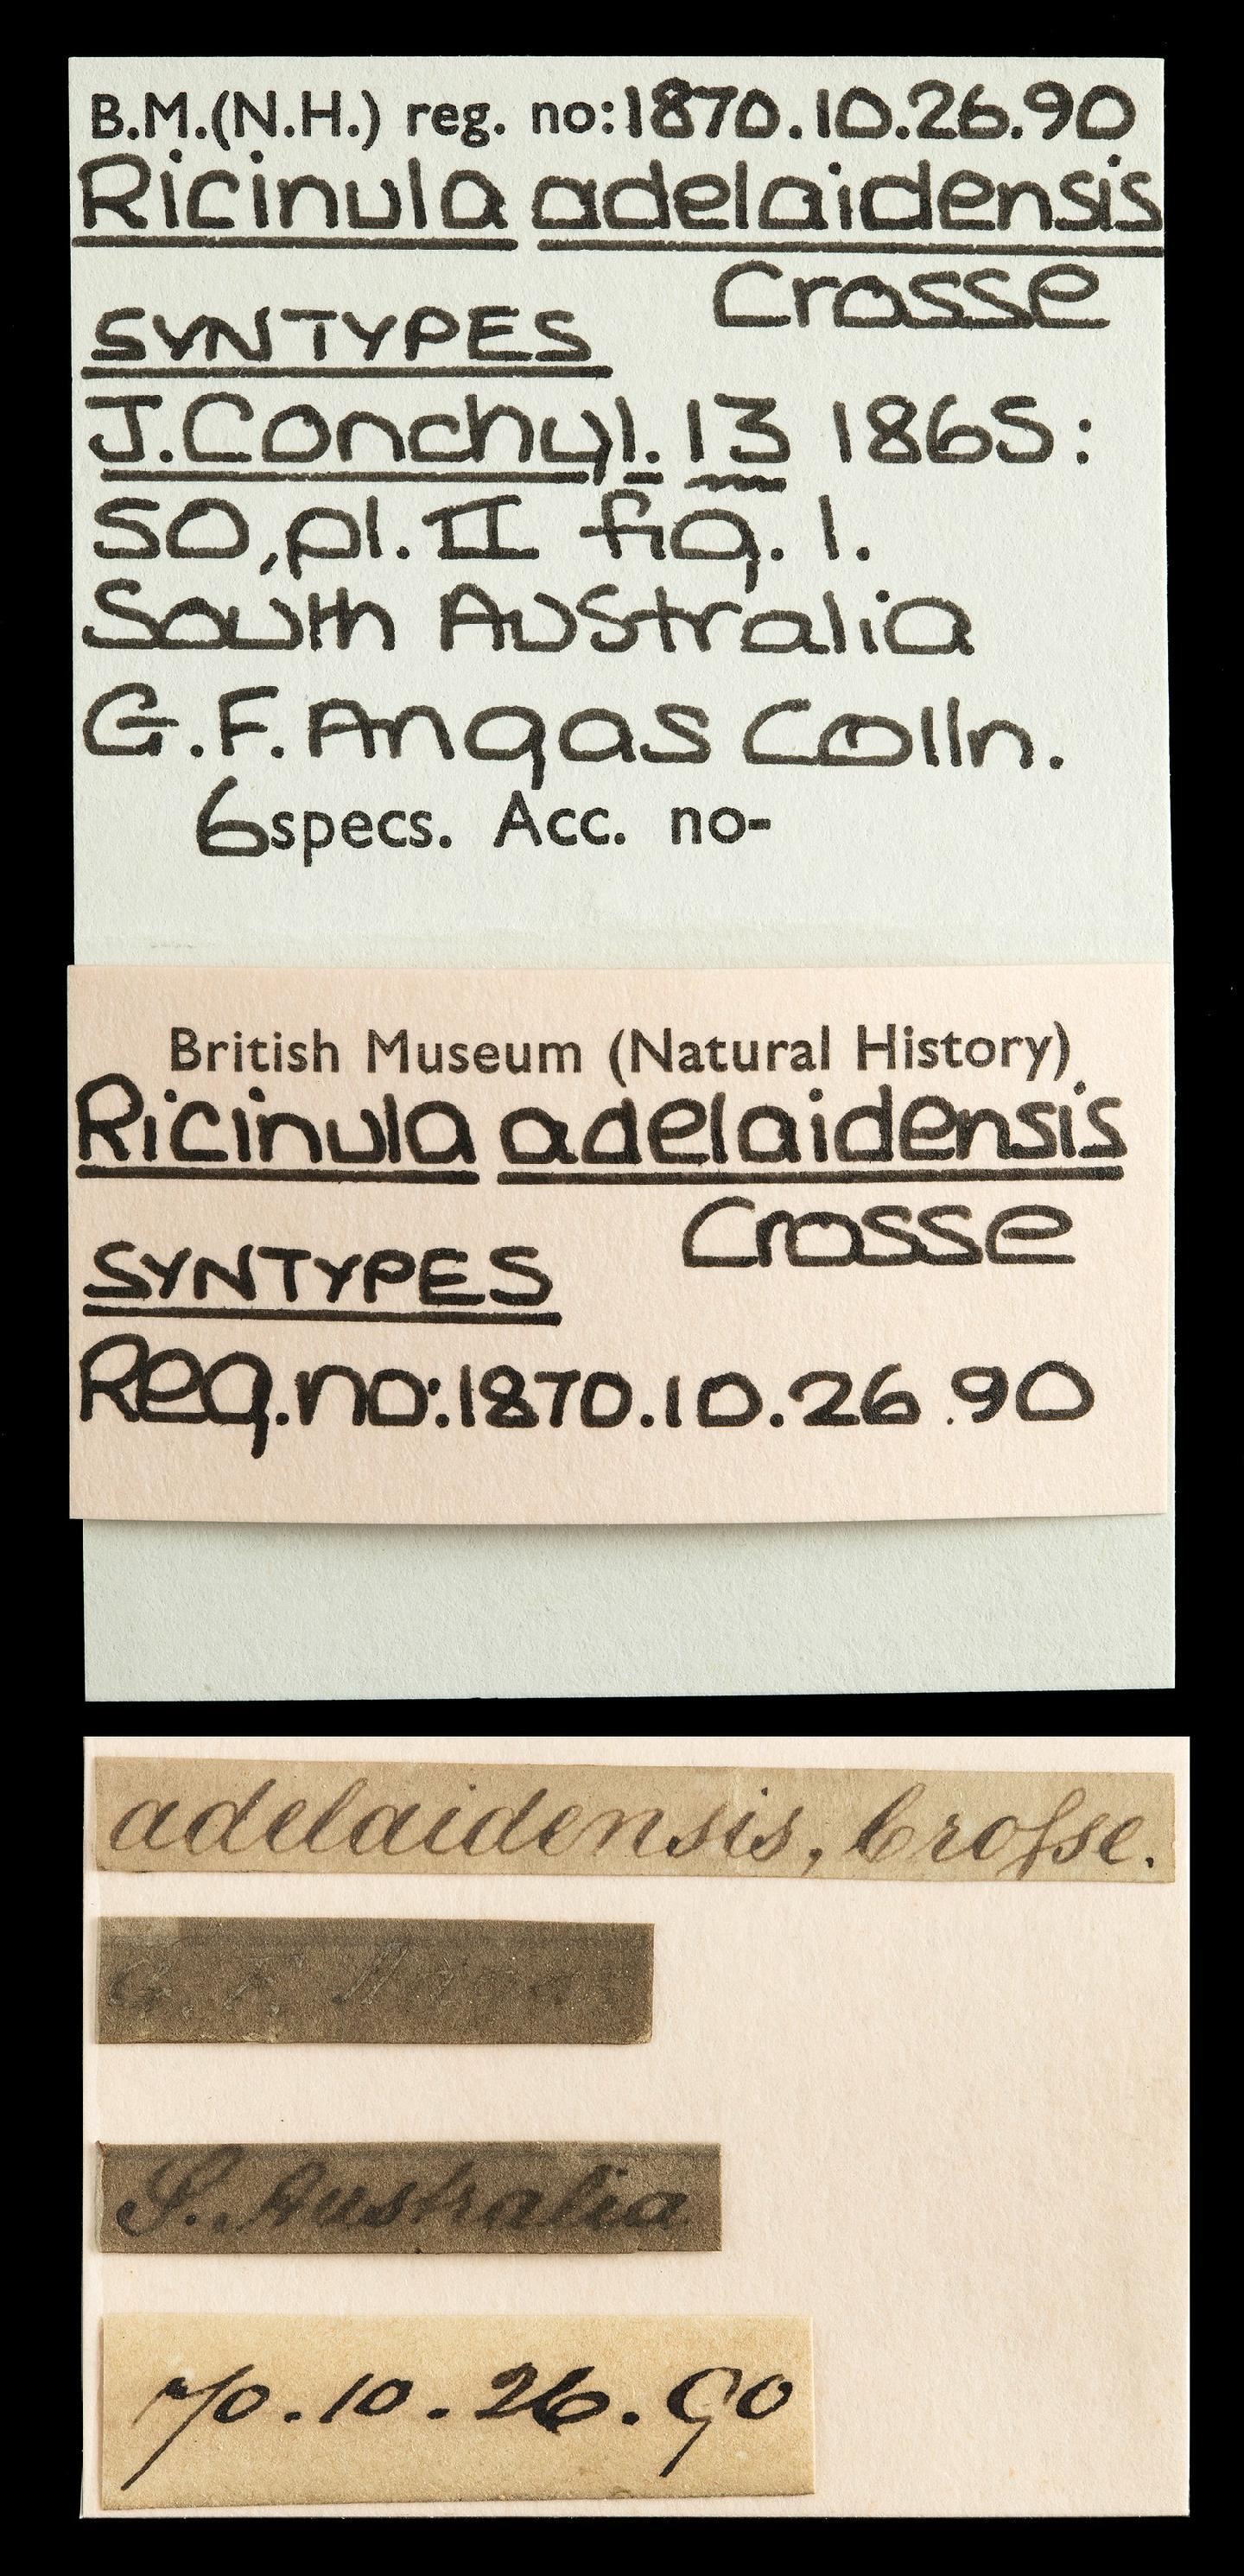 B.M.(N.H.) reg. no:1870.10.26.90
Ricinula adelaidensis
Crosse
SYNTYPES
J.Conchyl. 13 1865:
50, pl. II fig. 1.
South Australia
G.F. Angas Colln.
6 specs. Acc. no-
British Museum (Natural History)
Ricinula adelaidensis
Crosse
SYNTYPES
Reg.no:1870.10.26.90
adelaidensis, Croſse.
G. F. Angas
S. Australia
70.10.26.90